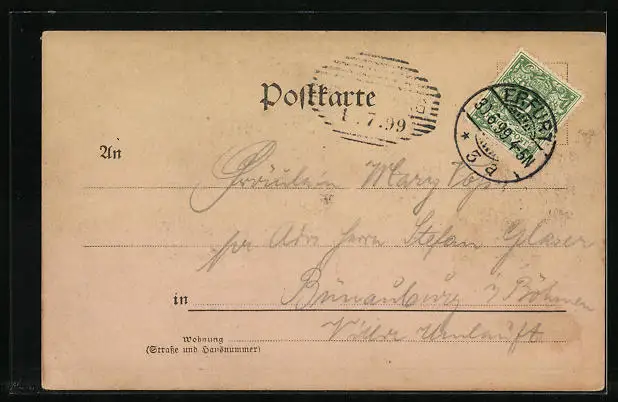 Postkarte
1.7.99
ERFURT
30.6.99.4-5N
* 3a *
An
Fräulein Mary
per Adr. Herrn Stefan Glaser
in
Bünauburg i/Böhmen
Villa
Wohnung
(Straße und Hausnummer)